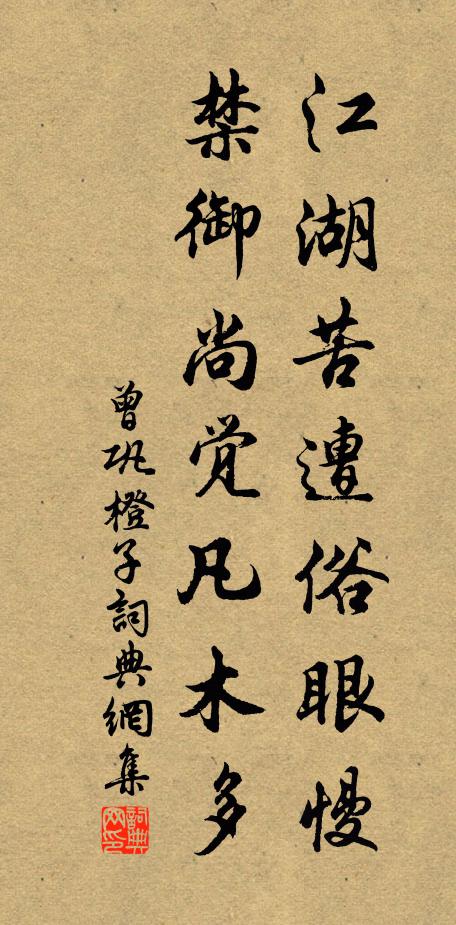 江湖苦遭俗眼慢
禁御尚觉凡木多
曾巩橙子詞典網集
詞典網印